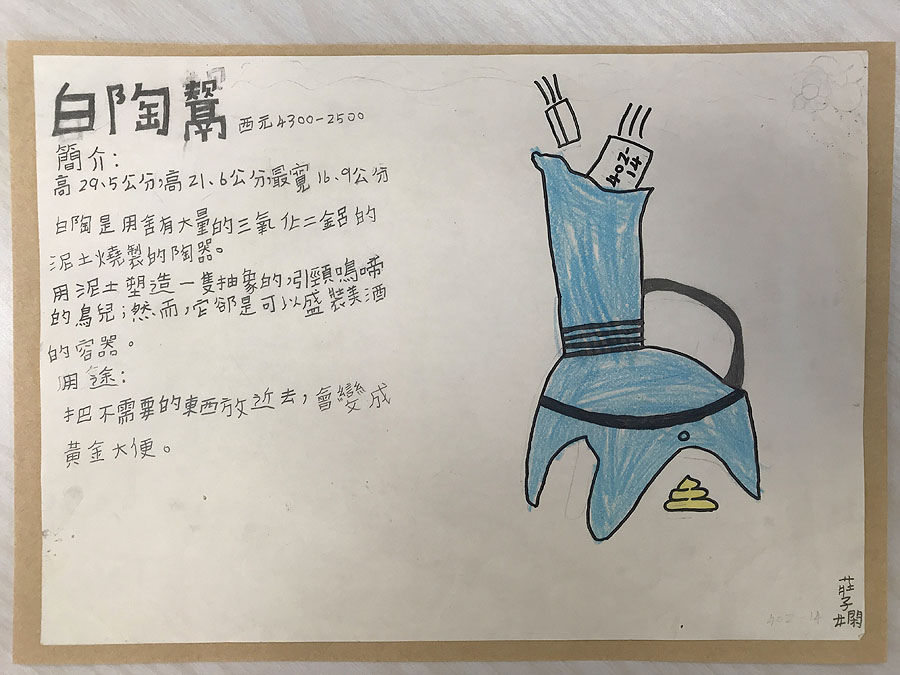 白陶鬹 西元4300-2500
簡介:
高29.5公分,高21.6公分,最寬16.9公分
白陶是用含有大量的三氧化二鋁的
泥土燒製的陶器。
用泥土塑造一隻抽象的,引頸鳴啼
的鳥兒;然而,它卻是可以盛裝美酒
的容器。
用途:
把不需要的東西放近去,會變成
黃金大便。
402-
14
402-14
莊子嫻